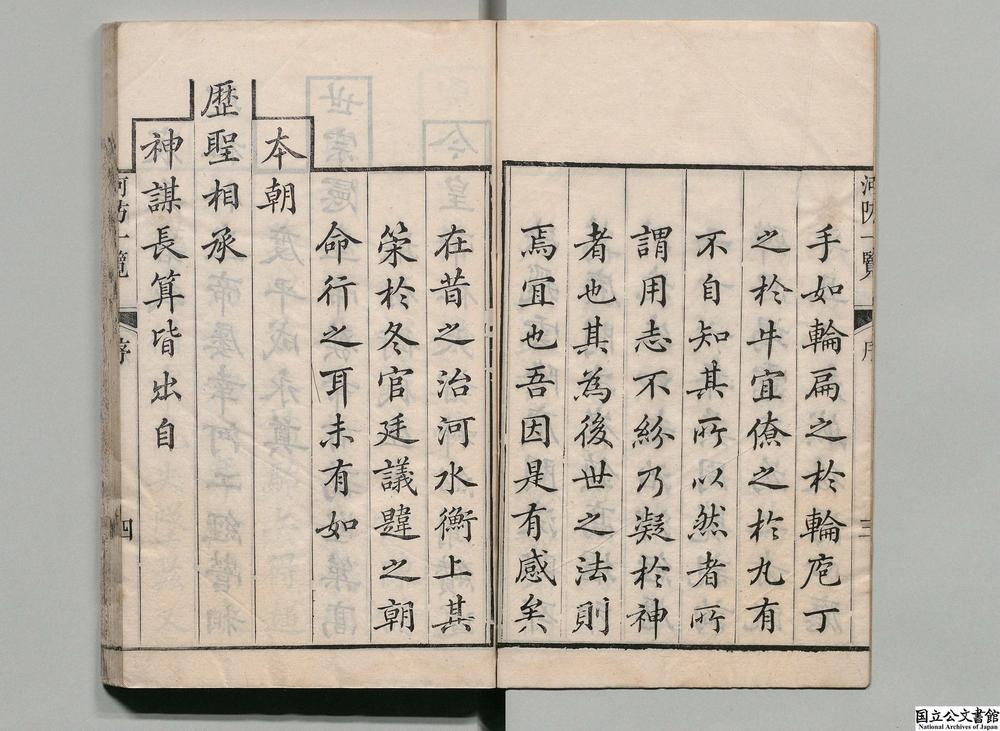 手如輪扁之於輪庖丁
之於牛宜僚之於丸有
不自知其所以然者所
謂用志不紛乃凝於神
者也其為後世之法則
焉宜也吾因是有感矣
在昔之治河水衡上其
筞於冬官廷議韙之朝
命行之耳未有如
本朝
歷聖相承
神謀長算皆出自
河防一覽
序
四
国立公文書館
National Archives of Japan